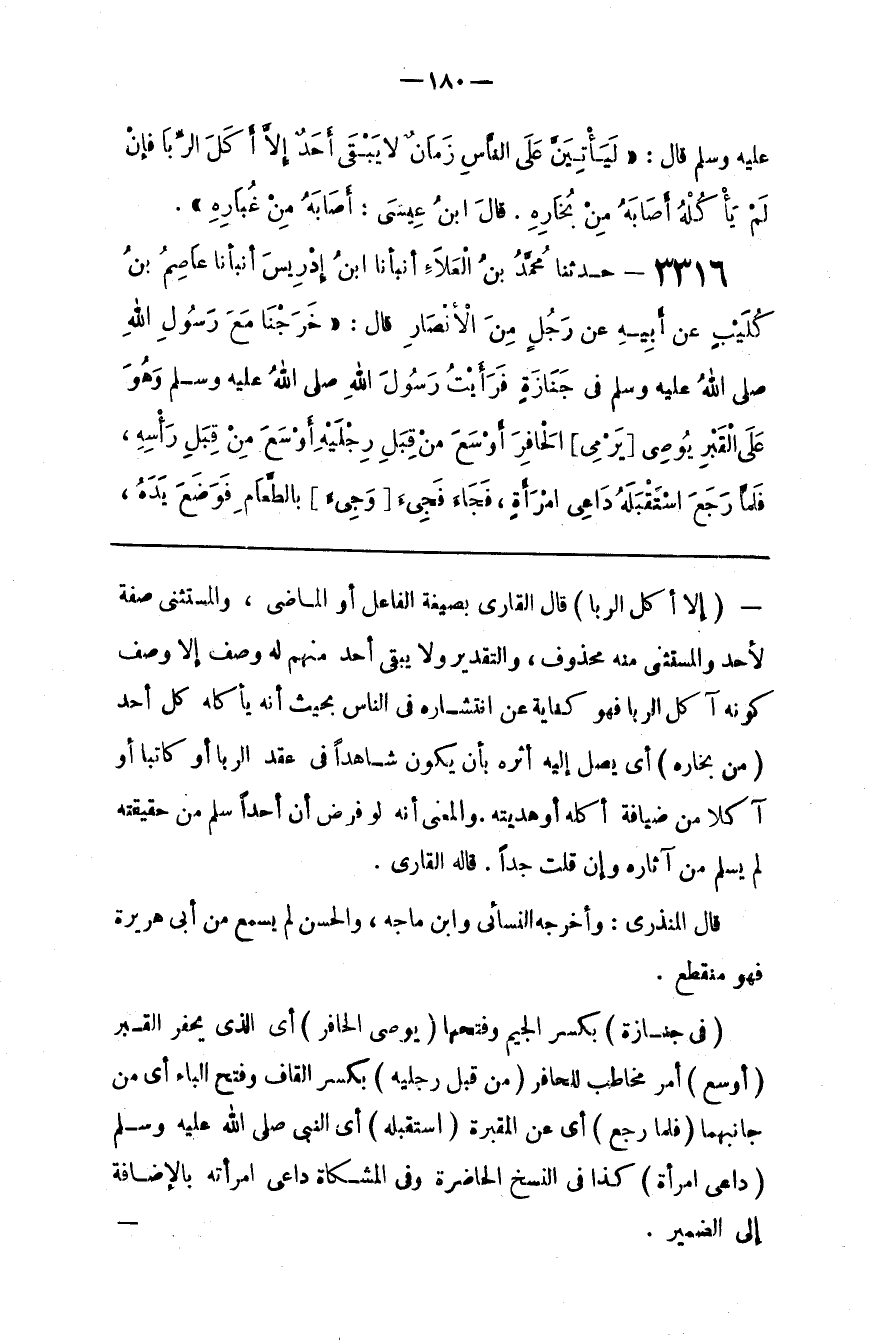 — ١٨٠ —
عليه وسلم قال : « لَيَأْتِيَنَّ عَلَى النَّاسِ زَمَانٌ لا يَبْقَى أَحَدٌ إِلاَّ أَكَلَ الرِّبَا فإِنْ
لَمْ يَأْكُلْهُ أَصَابَهُ مِنْ بُخَارِهِ . قالَ ابنُ عِيسَى : أَصَابَهُ مِنْ غُبَارِهِ » .
٣٣١٦ — حدثنا مُحمَّدُ بنُ الْعَلاَءِ أنبأنا ابنُ إِدْرِيسَ أنبأنا عاَصِمُ بنُ
كُلَيْبٍ عن أَبِيهِ عن رَجُلٍ مِنَ الْأَنْصَارِ قال : « خَرَجْنَا مَعَ رَسُولِ اللهِ
صلى اللهُ عليه وسلم فى جَنَازَةٍ فَرَأَيْتُ رَسُولَ اللهِ صلى اللهُ عليه وسلم وَهُوَ
عَلَى الْقَبْرِ يُوصِى [ يَرْمِى ] الْحَافِرَ أَوْسَعَ مِنْ قِبَلِ رِجْلَيْهِ أَوْسَعَ مِنْ قِبَلِ رَأْسِهِ ،
فَلمَّا رَجَعَ اسْتَقْبَلَهُ دَاعِى امْرَأَةٍ ، فَجَاءَ فَجِىءَ [ وَجِىءَ ] بالطَّعَامِ فَوَضَعَ يَدَهُ ،
— ( إلا أكل الربا ) قال القارى بصيغة الفاعل أو الماضى ، والمستثنى صفة
لأحد والمستثنى منه محذوف ، والتقدير ولا يبقى أحد منهم له وصف إلا وصف
كونه آكل الربا فهو كناية عن انتشاره فى الناس بحيث أنه يأكله كل أحد
( من بخاره ) أى يصل إليه أثره بأن يكون شاهداً فى عقد الربا أو كاتبا أو
آكلا من ضيافة أكله أو هديته . والمعنى أنه لو فرض أن أحداً سلم من حقيقته
لم يسلم من آثاره وإن قلت جداً . قاله القارى .
قال المنذرى : وأخرجه النسائى وابن ماجه ، والحسن لم يسمع من أبى هريرة
فهو منقطع .
( فى جنازة ) بكسر الجيم وفتحها ( يوصى الحافر ) أى الذى يحفر القبر
( أوسع ) أمر مخاطب للحافر ( من قبل رجليه ) بكسر القاف وفتح الباء أى من
جانبهما ( فلما رجع ) أى عن المقبرة ( استقبله ) أى النبى صلى الله عليه وسلم
( داعى امرأة ) كذا فى النسخ الحاضرة وفى المشكاة داعى امرأته بالإضافة
إلى الضمير . —